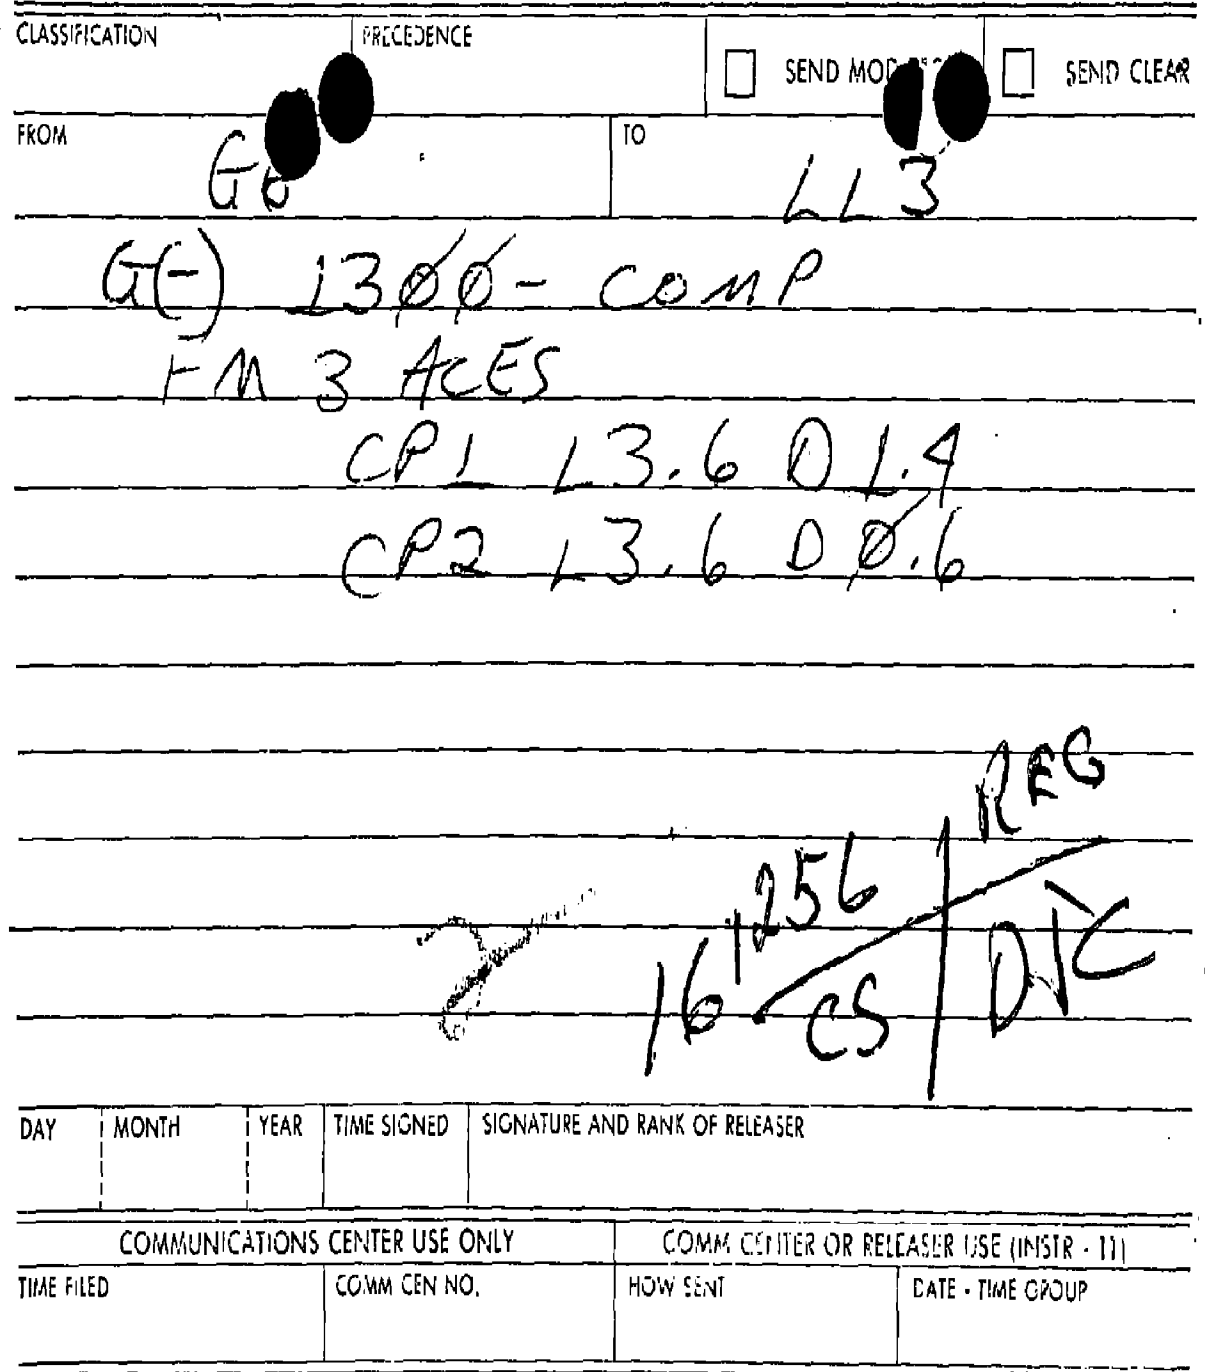 CLASSIFICATION PRECEDENCE
SEND MOD SEND CLEAR
FROM TO
LL3
G(-) 13ØØ - COMP
FM 3 ACES
CP1 L3.6 D 1.4
CP2 L3.6 D Ø.6
REG
161256
CS DTC
DAY MONTH YEAR TIME SIGNED SIGNATURE AND RANK OF RELEASER
COMMUNICATIONS CENTER USE ONLY COMM CENTER OR RELEASER USE (INSTR - 11)
TIME FILED COMM CEN NO. HOW SENT DATE - TIME GROUP